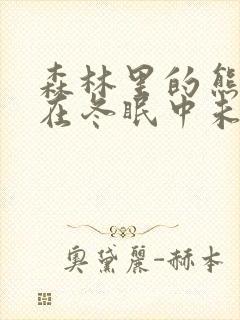 森林里的熊
在冬眠中未
奥黛丽-赫本